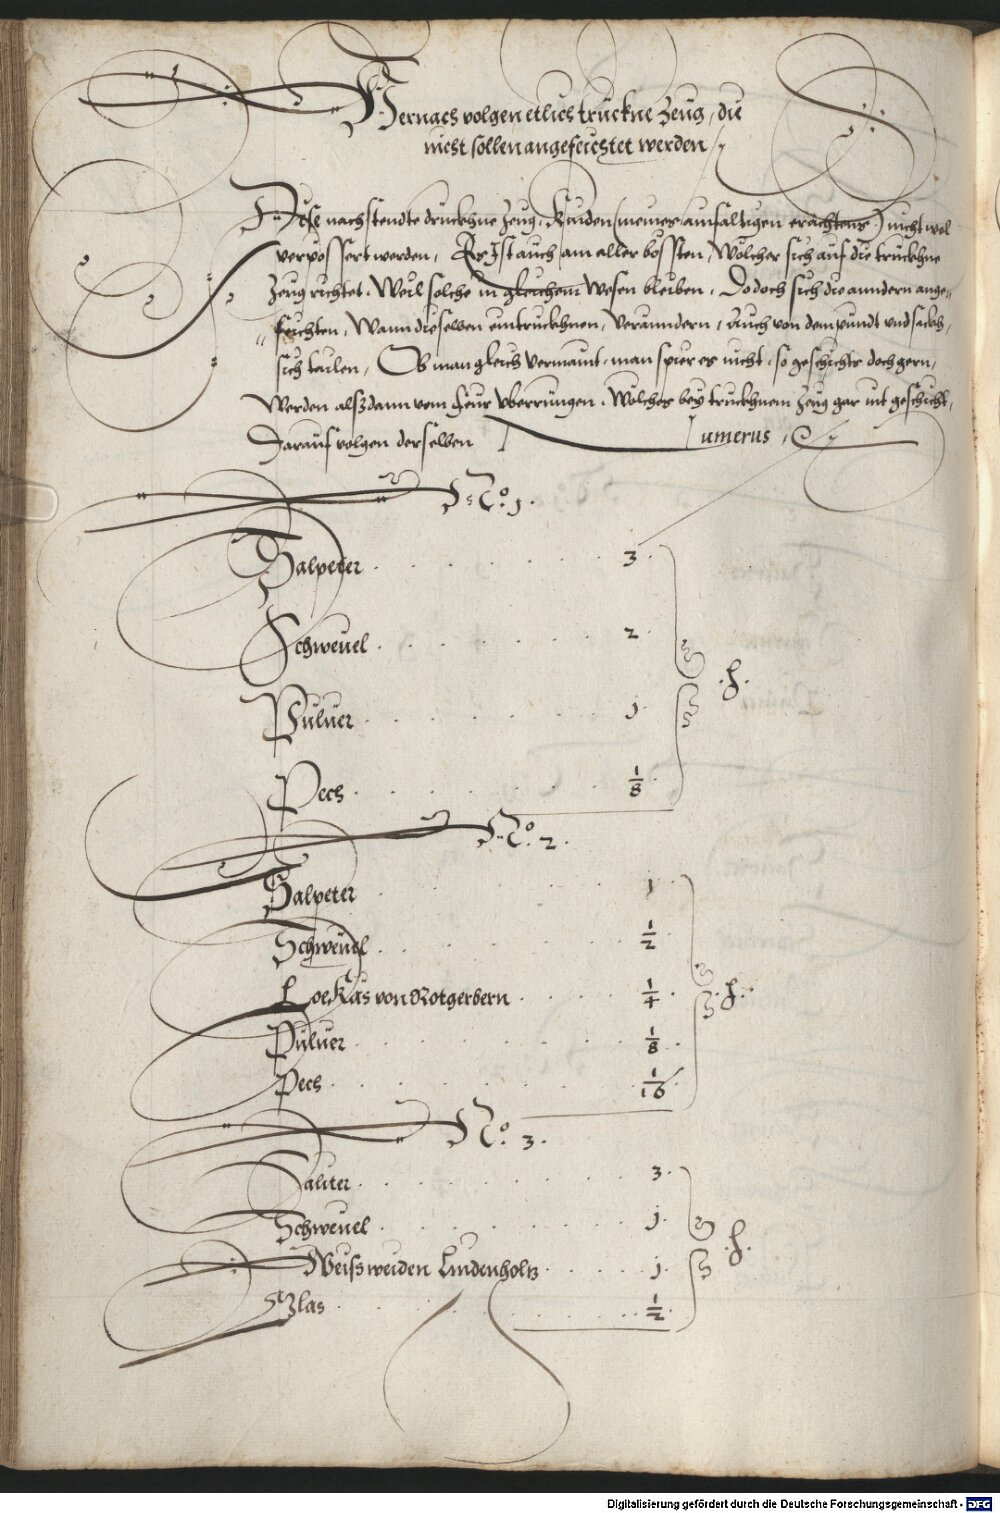 Hernach volgen etlich truckne Zeug, die
nicht sollen angefeichtet werden
Dise nachstendte druckhne Zeug, Kinden (meines ainfaltigen erachtens) nicht wol
verpössert werden, Es Ist auch am aller bossten, Wölcher sich auf die truckhne
Zeug richtet. Weil solche in gleichem Wesen bleiben. Dodoch sich die anndern ange-
feichten, Wann dieselben eintruckhnen, Veranndern, Auch von dem pundt vnd
sich tailen, Ob man gleich Vermaint, man spier es nicht, so geschichts doch gern,
Werden alsdann vom feur vberrungen. Wölches bey truckhnem Zeug gar nit geschicht,
Darauf volgen derselben Numerus,
No. 1.
Salpeter . . . . . 3.
Schweuel . . . . . 2
Puluer . . . . . 1
Pech . . . . . 1/8
No. 2.
Salpeter . . . . . 1
Schweuel . . . . . 1/2
Loe Käs von Rotgerbern . . . . 1/4
Puluer . . . . . 1/8
Pech . . . . . 1/16
No. 3.
Saliter . . . . . 3.
Schweuel . . . . . 1.
Weissweiden Lindenholtz . . . . 1.
Glas . . . . . 1/2
Digitalisierung gefördert durch die Deutsche Forschungsgemeinschaft - DFG